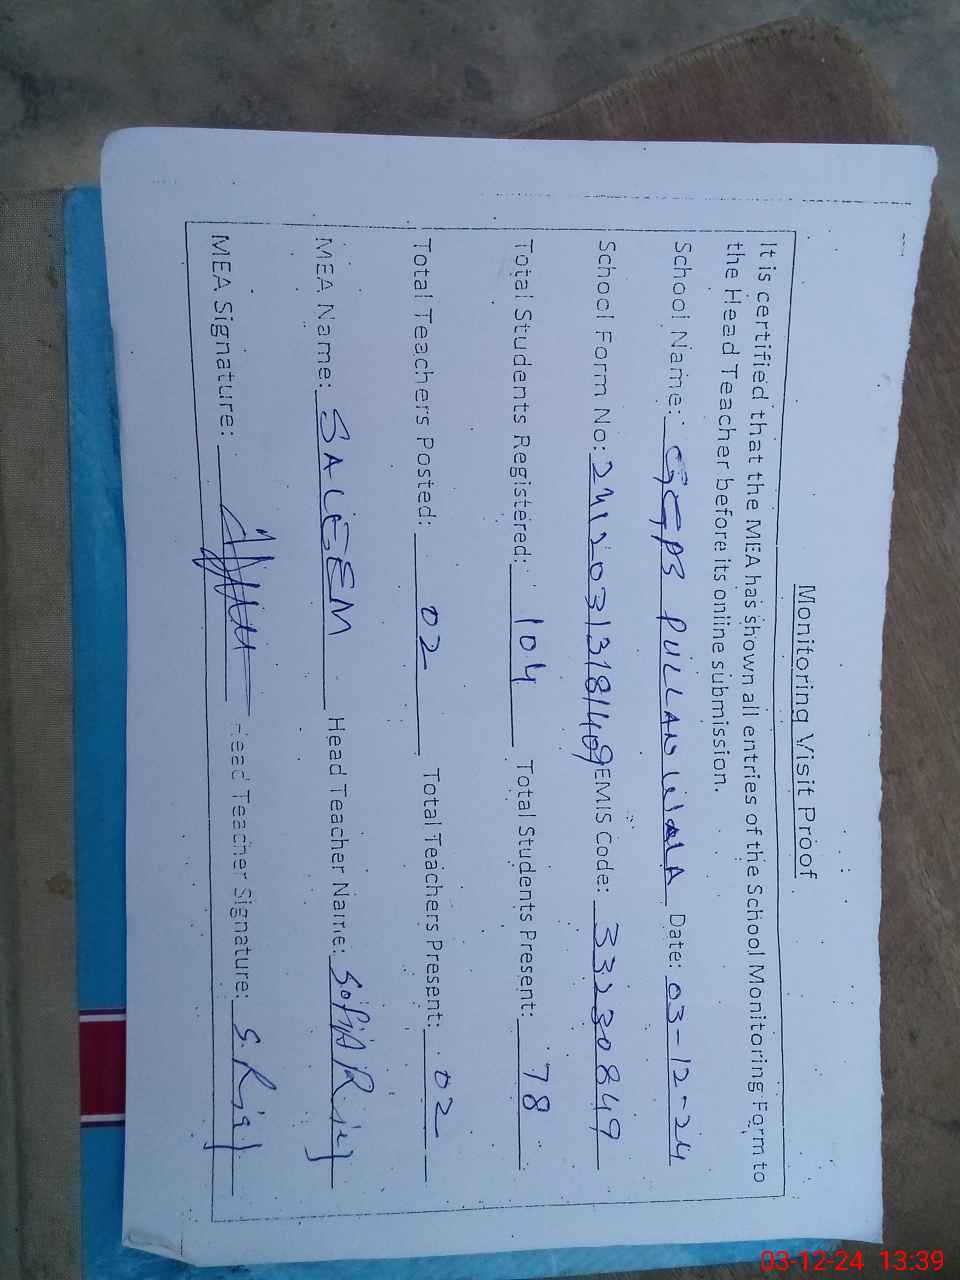 Monitoring Visit Proof
It is certified that the MEA has shown all entries of the School Monitoring Form to
the Head Teacher before its online submission.
School Name: GGPS PULLANWALA Date: 03-12-24
School Form No: EMIS Code: 33230849
Total Students Registered: 104 Total Students Present: 78
Total Teachers Posted: 02 Total Teachers Present: 02
MEA Name: SALEEM Head Teacher Name: SOFIA
MEA Signature: Head Teacher Signature:
03-12-24 13:39